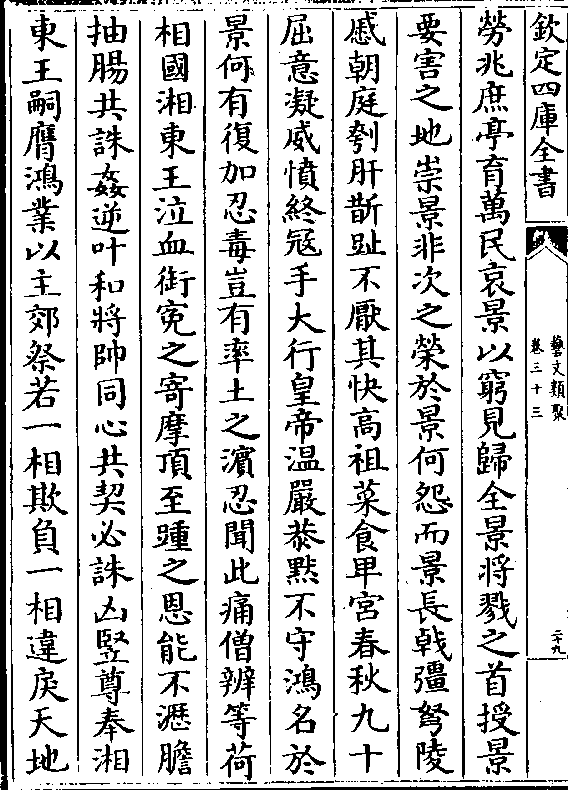 欽定四庫全書
藝文類聚
卷三十三
二十九
勞兆庶亭育萬民哀景以窮見歸全景將戮之首授景
要害之地崇景非次之榮於景何怨而景長戟彊弩陵
慼朝庭刳肝斮趾不厭其快高祖菜食卑宮春秋九十
屈意凝威憤終冦手大行皇帝温嚴恭黙不守鴻名於
景何有復加忍毒豈有率土之濵忍聞此痛僧辨等荷
相國湘東王泣血銜寃之寄摩頂至踵之恩能不瀝膽
抽腸共誅姦逆叶和將帥同心共契必誅凶竪尊奉湘
東王嗣膺鴻業以主郊祭若一相欺負一相違戾天地